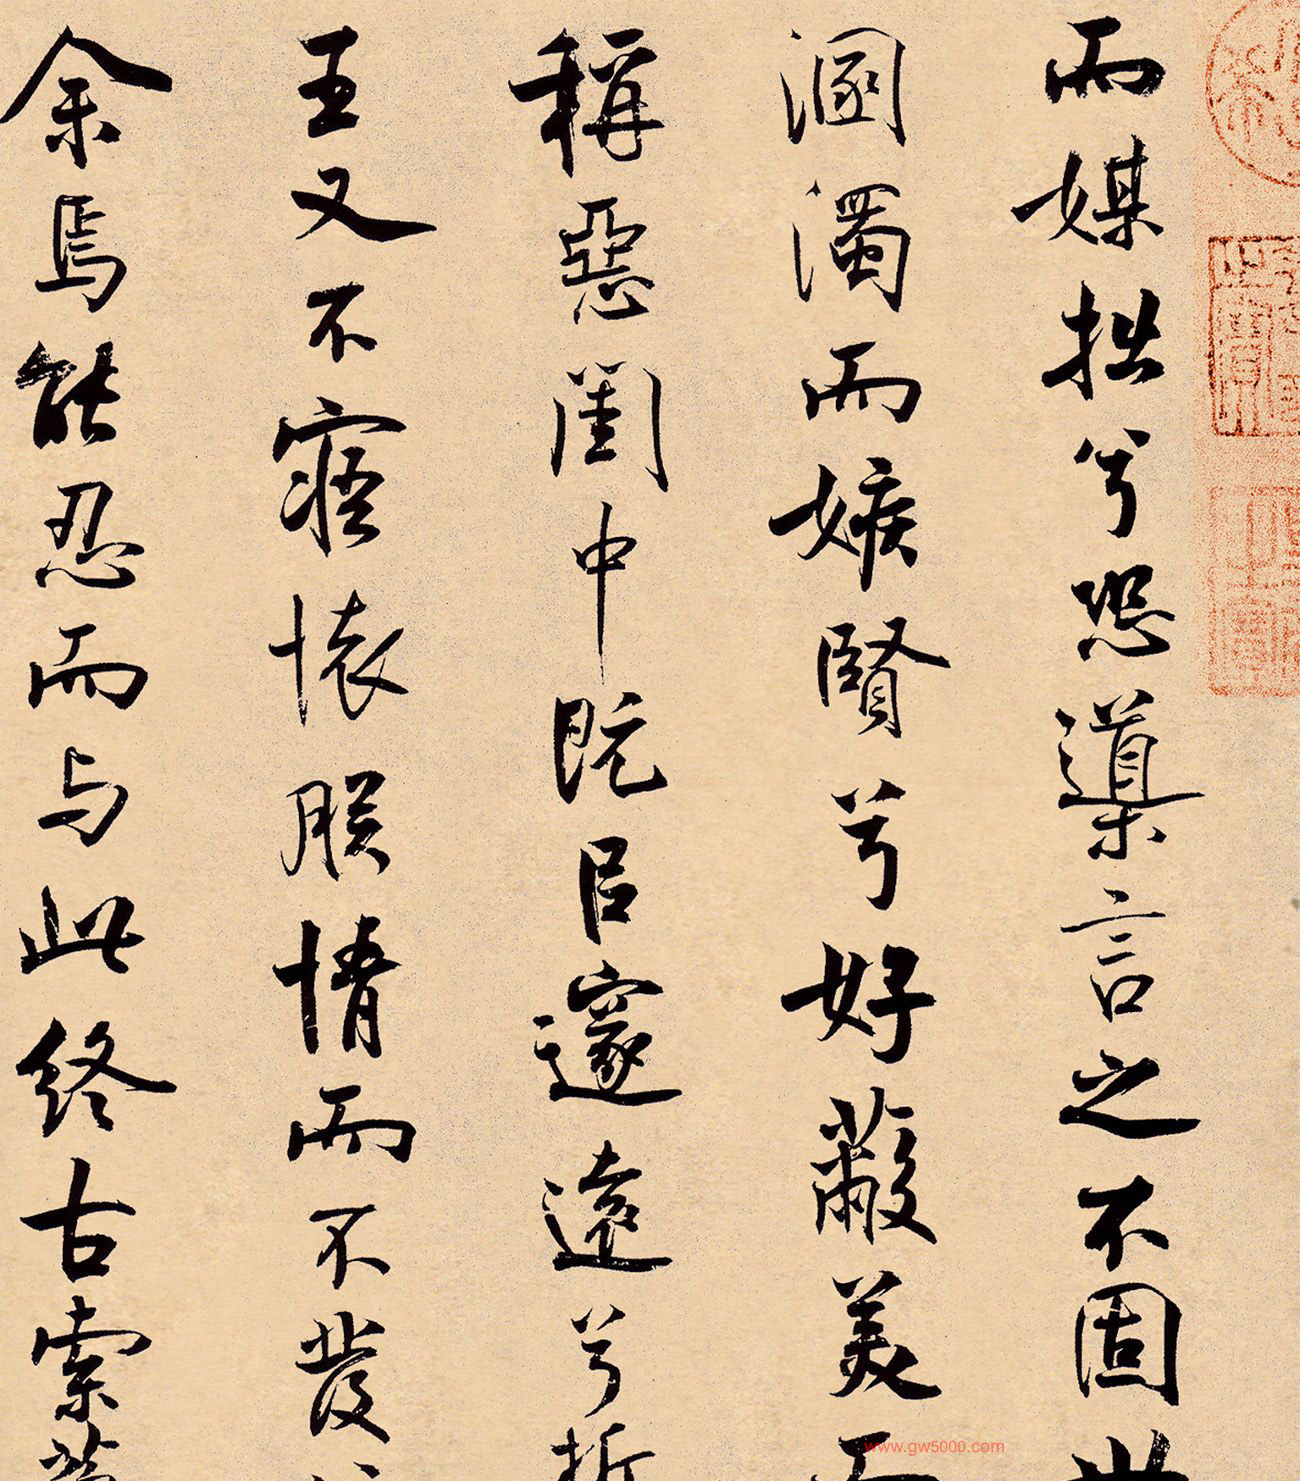 而媒拙兮恐導言之不固世
溷濁而嫉賢兮好蔽美而
稱惡閨中既㠯邃遠兮哲
王又不寤懷朕情而不發兮
余焉能忍而与此終古索
www.gw5000.com